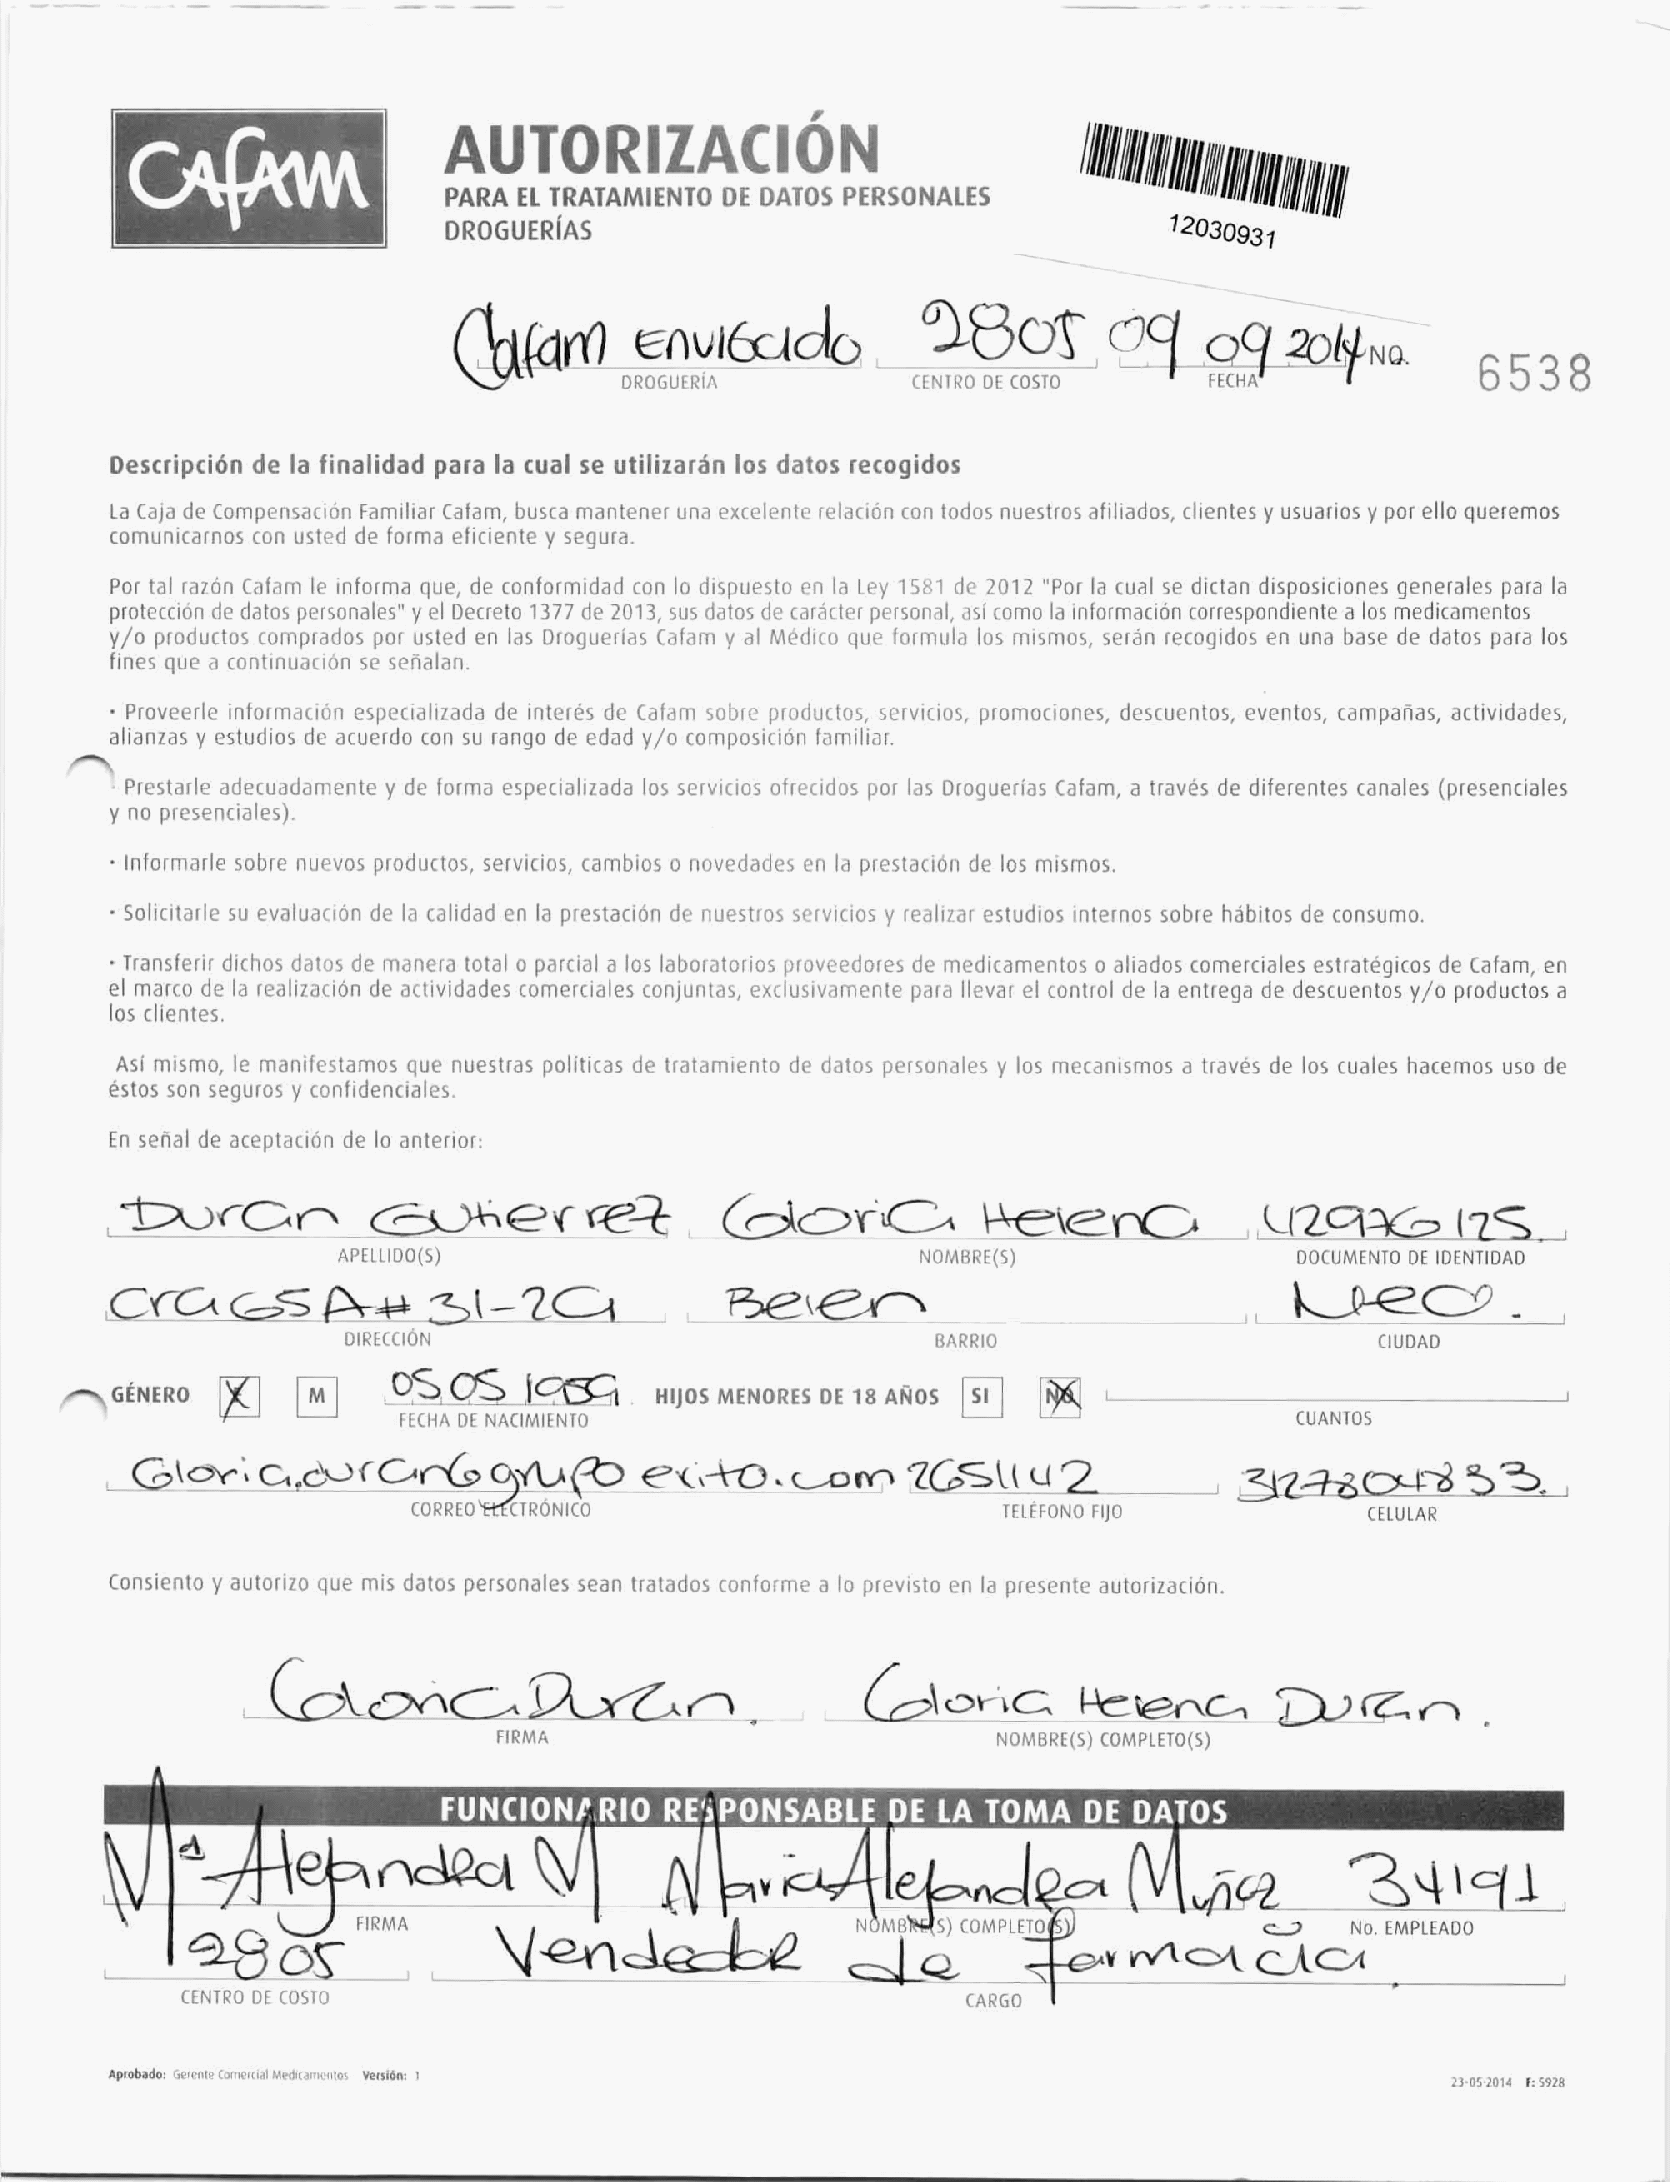 CAfAM
AUTORIZACIÓN
PARA EL TRATAMIENTO DE DATOS PERSONALES
DROGUERÍAS
12030931
Cafam Envigado 2805 09 09 2014 NO. 6538
DROGUERÍA CENTRO DE COSTO FECHA
Descripción de la finalidad para la cual se utilizarán los datos recogidos
La Caja de Compensación Familiar Cafam, busca mantener una excelente relación con todos nuestros afiliados, clientes y usuarios y por ello queremos
comunicarnos con usted de forma eficiente y segura.
Por tal razón Cafam le informa que, de conformidad con lo dispuesto en la Ley 1581 de 2012 "Por la cual se dictan disposiciones generales para la
protección de datos personales" y el Decreto 1377 de 2013, sus datos de carácter personal, así como la información correspondiente a los medicamentos
y/o productos comprados por usted en las Droguerías Cafam y al Médico que formula los mismos, serán recogidos en una base de datos para los
fines que a continuación se señalan.
· Proveerle información especializada de interés de Cafam sobre productos, servicios, promociones, descuentos, eventos, campañas, actividades,
alianzas y estudios de acuerdo con su rango de edad y/o composición familiar.
· Prestarle adecuadamente y de forma especializada los servicios ofrecidos por las Droguerías Cafam, a través de diferentes canales (presenciales
y no presenciales).
· Informarle sobre nuevos productos, servicios, cambios o novedades en la prestación de los mismos.
· Solicitarle su evaluación de la calidad en la prestación de nuestros servicios y realizar estudios internos sobre hábitos de consumo.
· Transferir dichos datos de manera total o parcial a los laboratorios proveedores de medicamentos o aliados comerciales estratégicos de Cafam, en
el marco de la realización de actividades comerciales conjuntas, exclusivamente para llevar el control de la entrega de descuentos y/o productos a
los clientes.
Así mismo, le manifestamos que nuestras políticas de tratamiento de datos personales y los mecanismos a través de los cuales hacemos uso de
éstos son seguros y confidenciales.
En señal de aceptación de lo anterior:
Duran Gutierrez Gloria Helena 42976125
APELLIDO(S) NOMBRE(S) DOCUMENTO DE IDENTIDAD
Cra 65 A # 31-29 Belen
DIRECCIÓN BARRIO CIUDAD
GÉNERO X M 05 05 1959 HIJOS MENORES DE 18 AÑOS SI NO
FECHA DE NACIMIENTO CUANTOS
Gloria.duran@grupo exito.com 2651142 3127804833
CORREO ELECTRÓNICO TELÉFONO FIJO CELULAR
Consiento y autorizo que mis datos personales sean tratados conforme a lo previsto en la presente autorización.
Gloria Duran Gloria Helena Duran.
FIRMA NOMBRE(S) COMPLETO(S)
FUNCIONARIO RESPONSABLE DE LA TOMA DE DATOS
Mª Alejandra M Maria Alejandra Muñoz 34191
FIRMA NOMBRE(S) COMPLETO(S) No. EMPLEADO
2805 Vendedor de farmacia
CENTRO DE COSTO CARGO
Aprobado: Gerente Comercial Medicamentos Versión: 1
23-05-2014 F: 5928